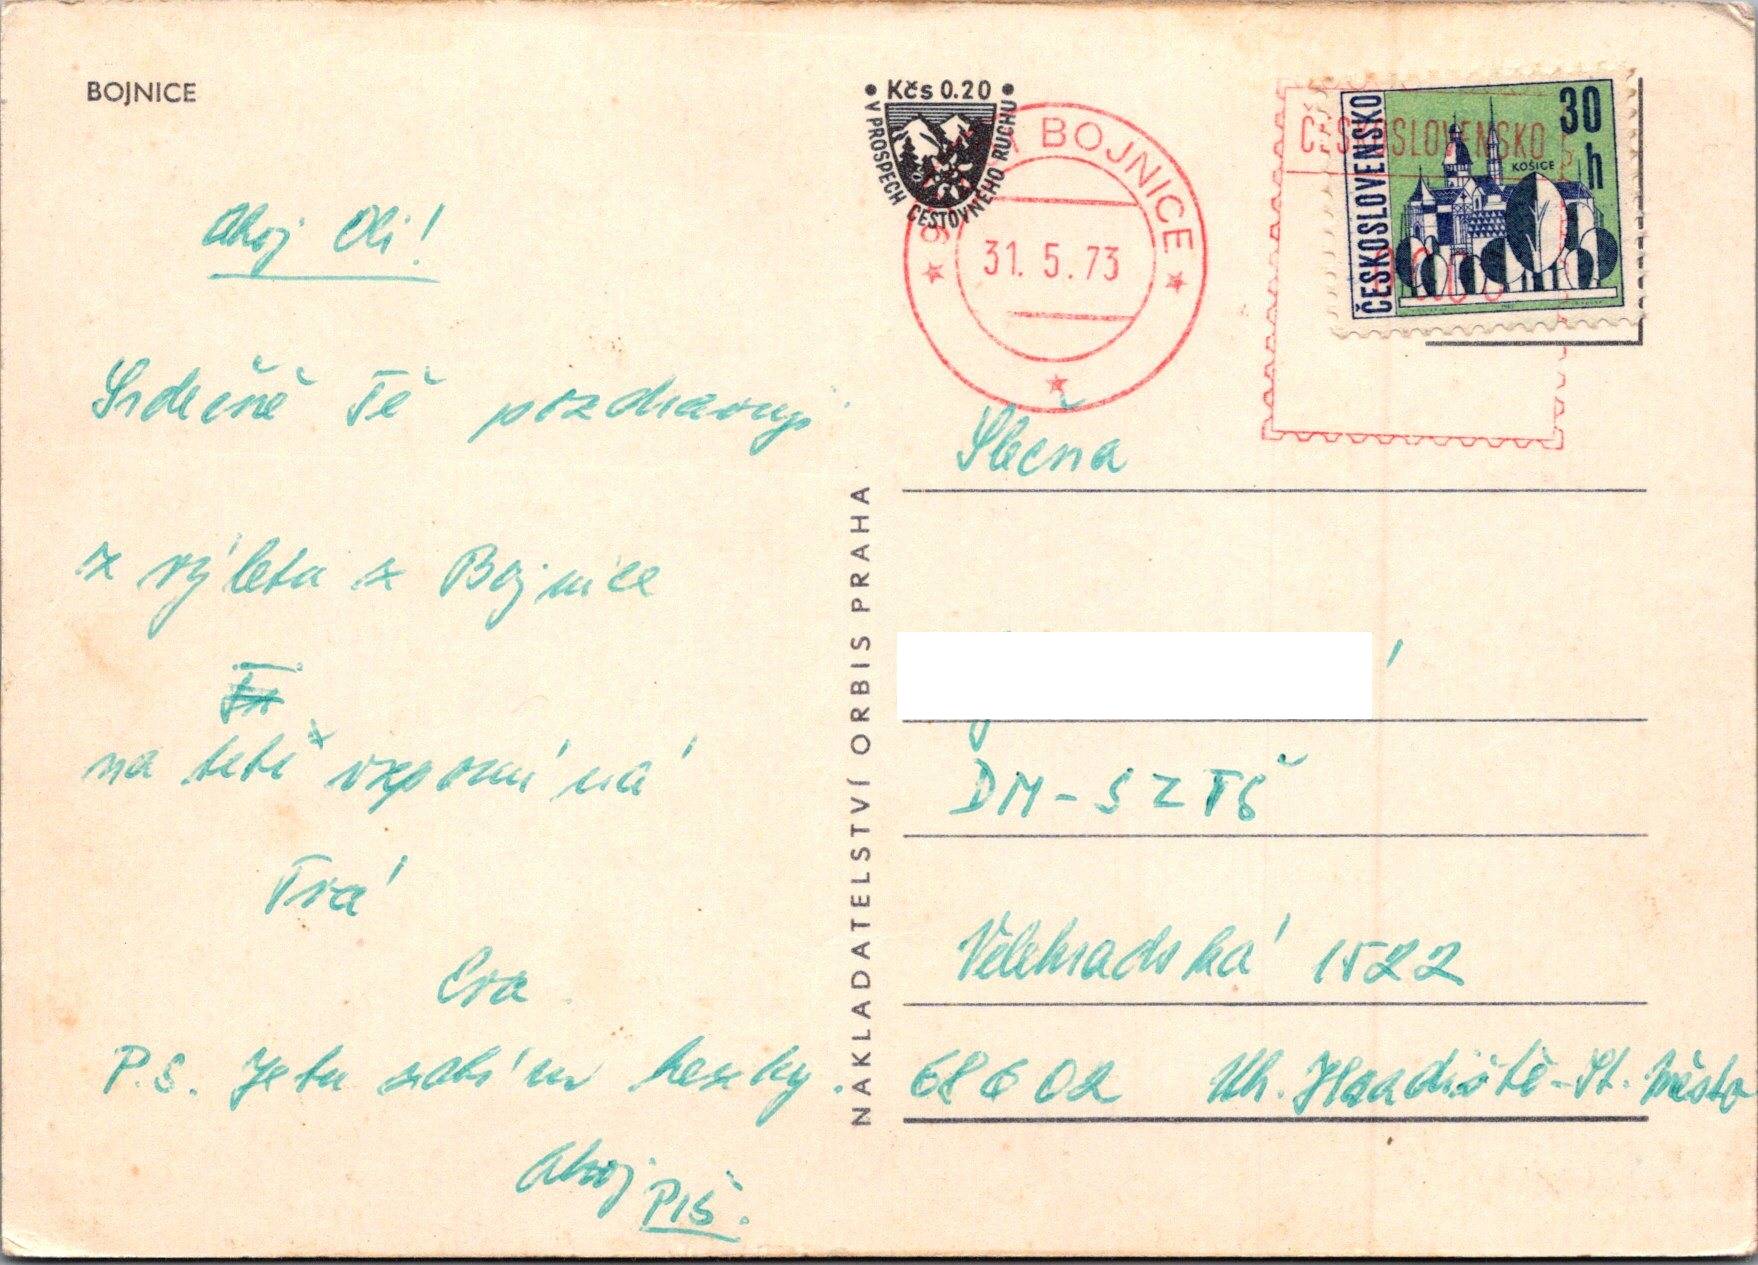 BOJNICE
Ahoj Oli!
Srdečně Tě pozdravuji
z výletu z Bojnice
na tebe vzpomíná
Tvá
Eva
P.S. Je tu zatím hezky.
Ahoj PIŠ.
NAKLADATELSTVÍ ORBIS PRAHA
• Kčs 0.20 •
V PROSPECH CESTOVNÉHO RUCHU
BOJNICE
31. 5. 73
ČESKOSLOVENSKO
ČESKOSLOVENSKO
30 h
KOŠICE
Slečna
DM - SZTŠ
Velehradská 1522
686 02 Uh. Hradiště - St. Město